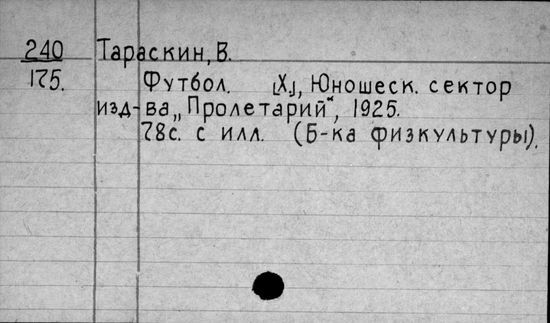 240 Тараскин, В.
175. Футбол. [Х.], Юношеск. сектор
изд-ва „Пролетарий“, 1925.
78с. с илл. (Б-ка физкультуры).